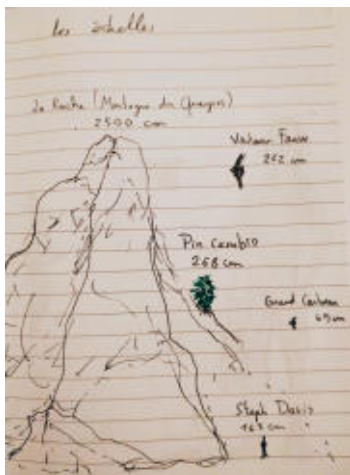 les échelles
La Roche (Montagne du
2500 cm
Vautour Fauve
252 cm
Pin cembro
268 cm
Grand Corbeau
69 cm
Steph Davis
165 cm